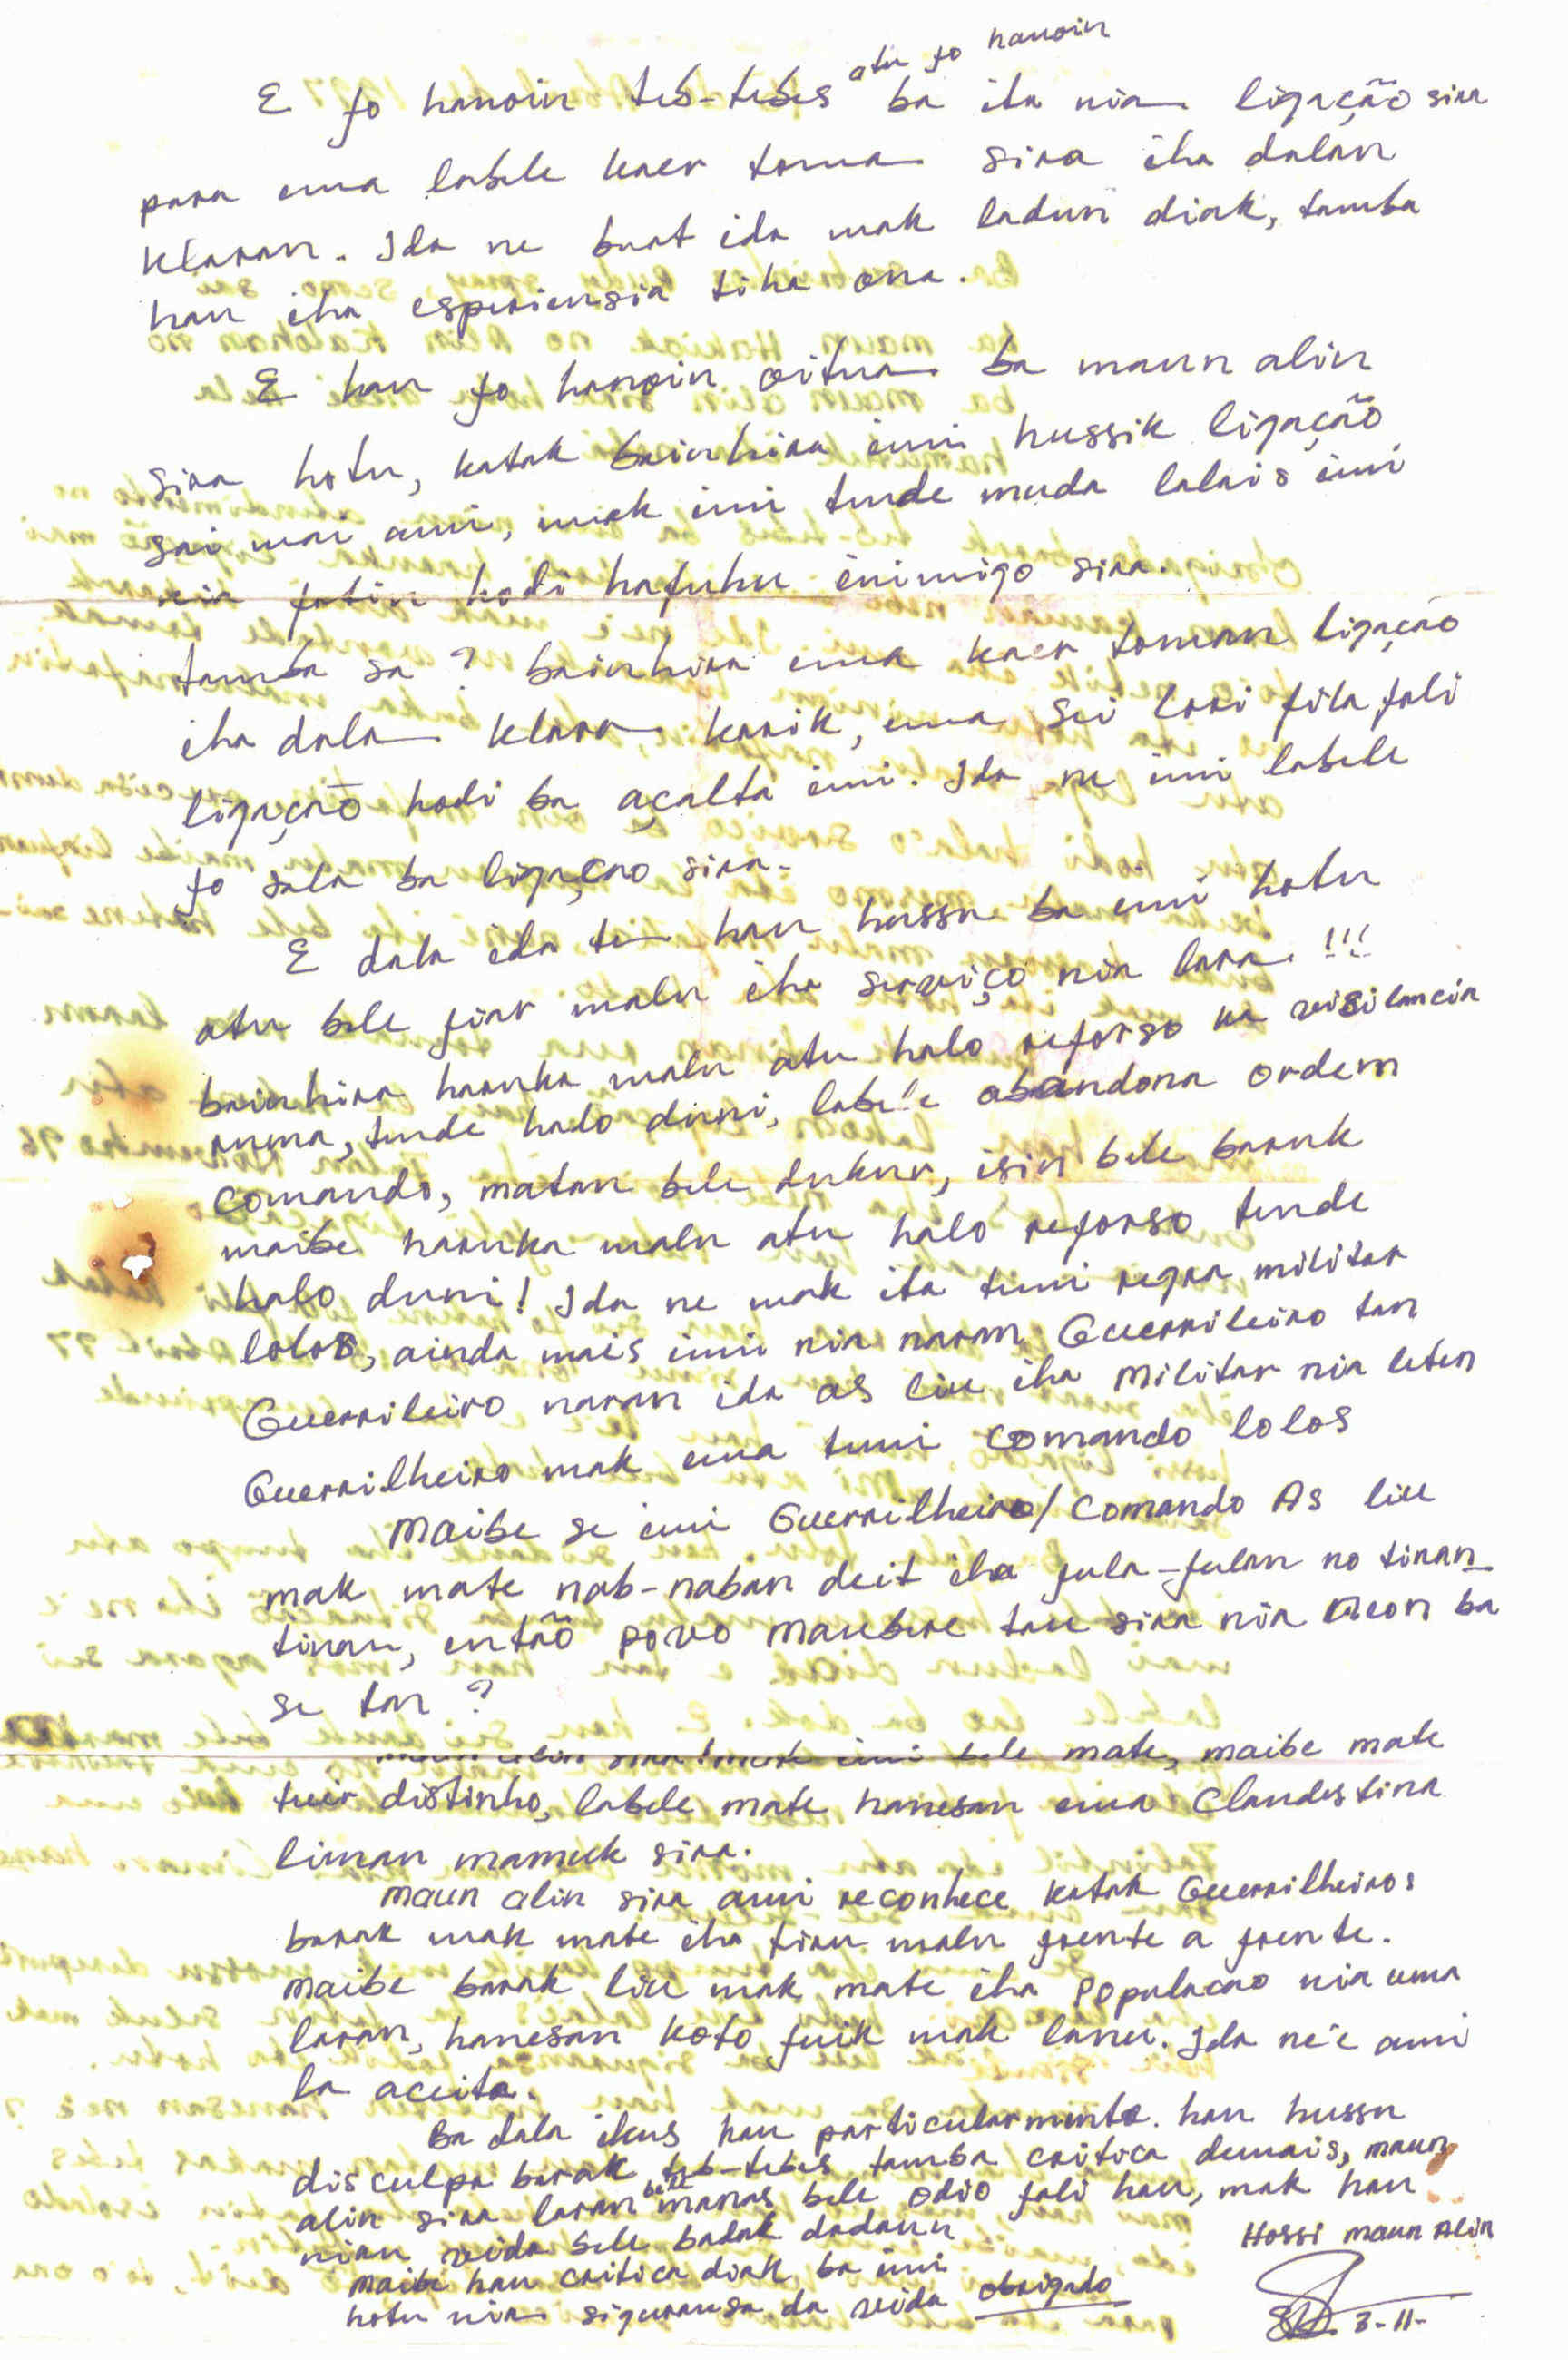 atu fo hanoin
E fo hanoin teb-tebes ba ita nia ligação sira
para ema labele kaer toma sira iha dalan
klaran. Ida ne buat ida mak ladun diak, tamba
hau iha esperiensia tiha ona.
E hau fo hanoin oituan ba maun alin
sira hotu, katak bainhira imi hussik ligação
sai mai ami, mak imi tende muda lalais imi
nia fatin hodi hafuhu inimigo sira.
tamba sa? bainhira ema kaer toman ligação
iha dala klara karik, ema sei lori fila fali
ligação hodi ba açalta imi. Ida ne imi labele
fo sala ba ligaçao sira.
E dala ida ti hau hussu ba imi hotu
atu bele fiar malu iha serviço nia lara !!!
bainhira haruka malu atu halo reforso ka visilancia
ruma, tende halo duni, labele abandona ordem
comando, matan bele dukur, isin bele baruk
maibe haruka malu atu halo reforso tende
halo duni! Ida ne mak ita tuni regra militar
lolos, ainda mais imi nia naran Guerrileiro tan
Guerrileiro naran ida as liu iha Militar nia leten
Guerrilheiro mak ema tuni comando lolos
Maibe se imi Guerrilheiro/Comando As liu
mak mate nab-naban deit iha fula-fulan no tinan-
tinan, então povo maubere tau sira nia Neon ba
se tan?
maun alin sira! mak imi bele mate, maibe mate
tuir distinho, labele mate hanesan ema Clandestina
liman mamuk sira.
Maun alin sira ami reconhece katak Guerrilheiros
barak mak mate iha tiru malu frente a frente.
Maibe barak liu mak mate iha Populacao nia uma
laran, hanesan koto fuik mak lanu. Ida ne'e ami
la aceita.
Ba dala ikus hau particularmente. hau hussu
disculpa barak teb-tebes tamba critica demais, maun
alin sira laran bele manas bele odio fali hau, mak hau
nian vida bele badak dadaun
Maibe hau critica diak ba imi
hotu nia siguransa da vida obrigado
Hossi Maun Alin
3-11-